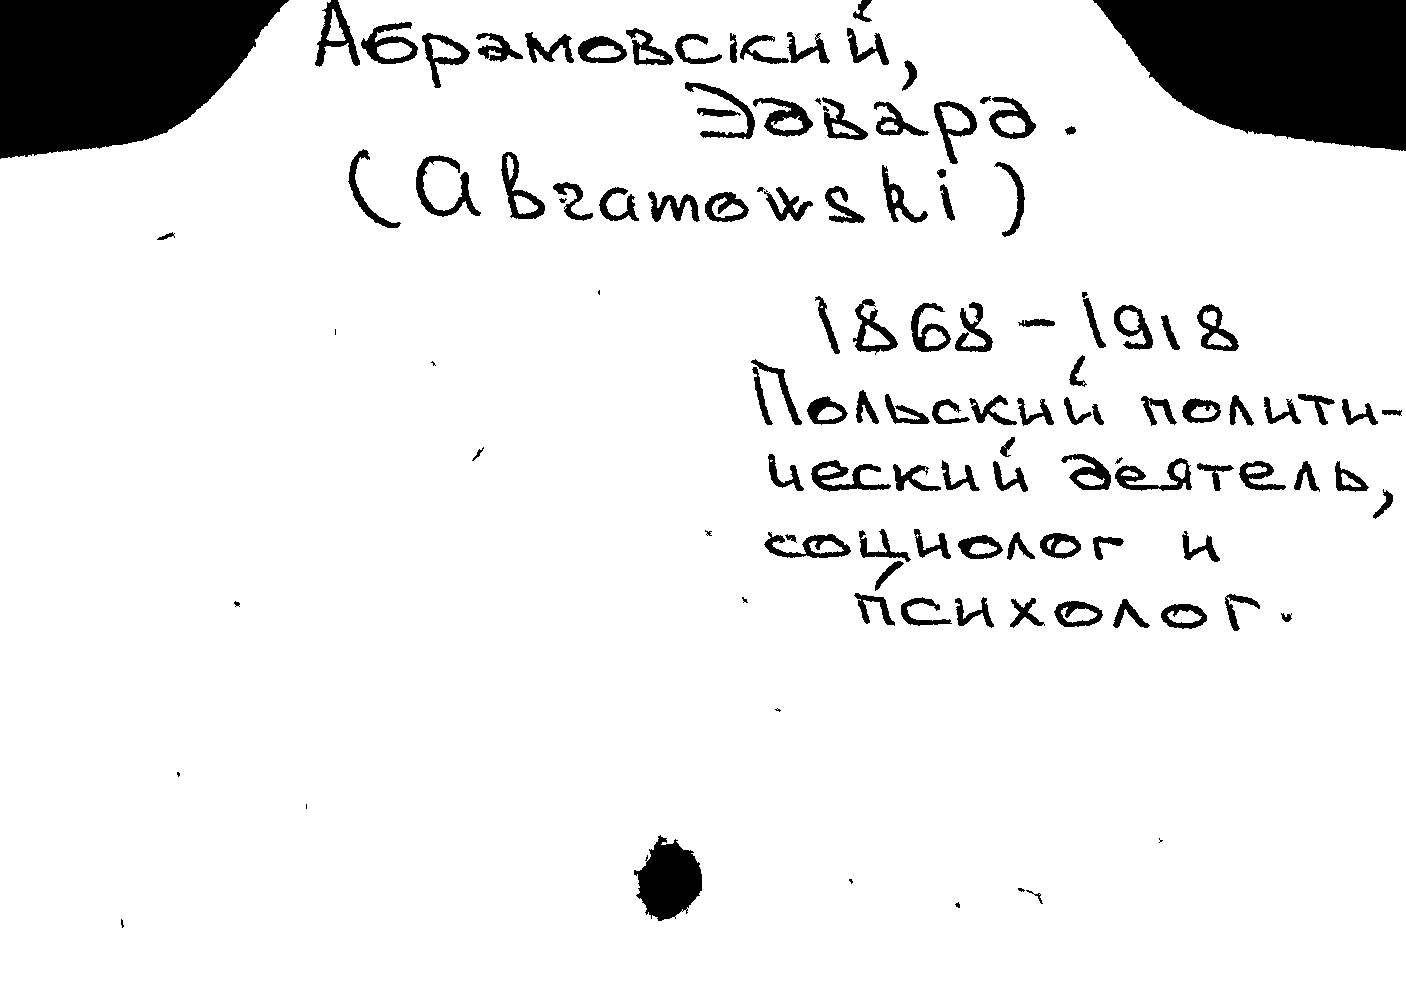 Абрамовский,
Эдвард.
(Abramowski)
1868-1918
Польский полити-
ческий деятель,
социолог и
психолог.